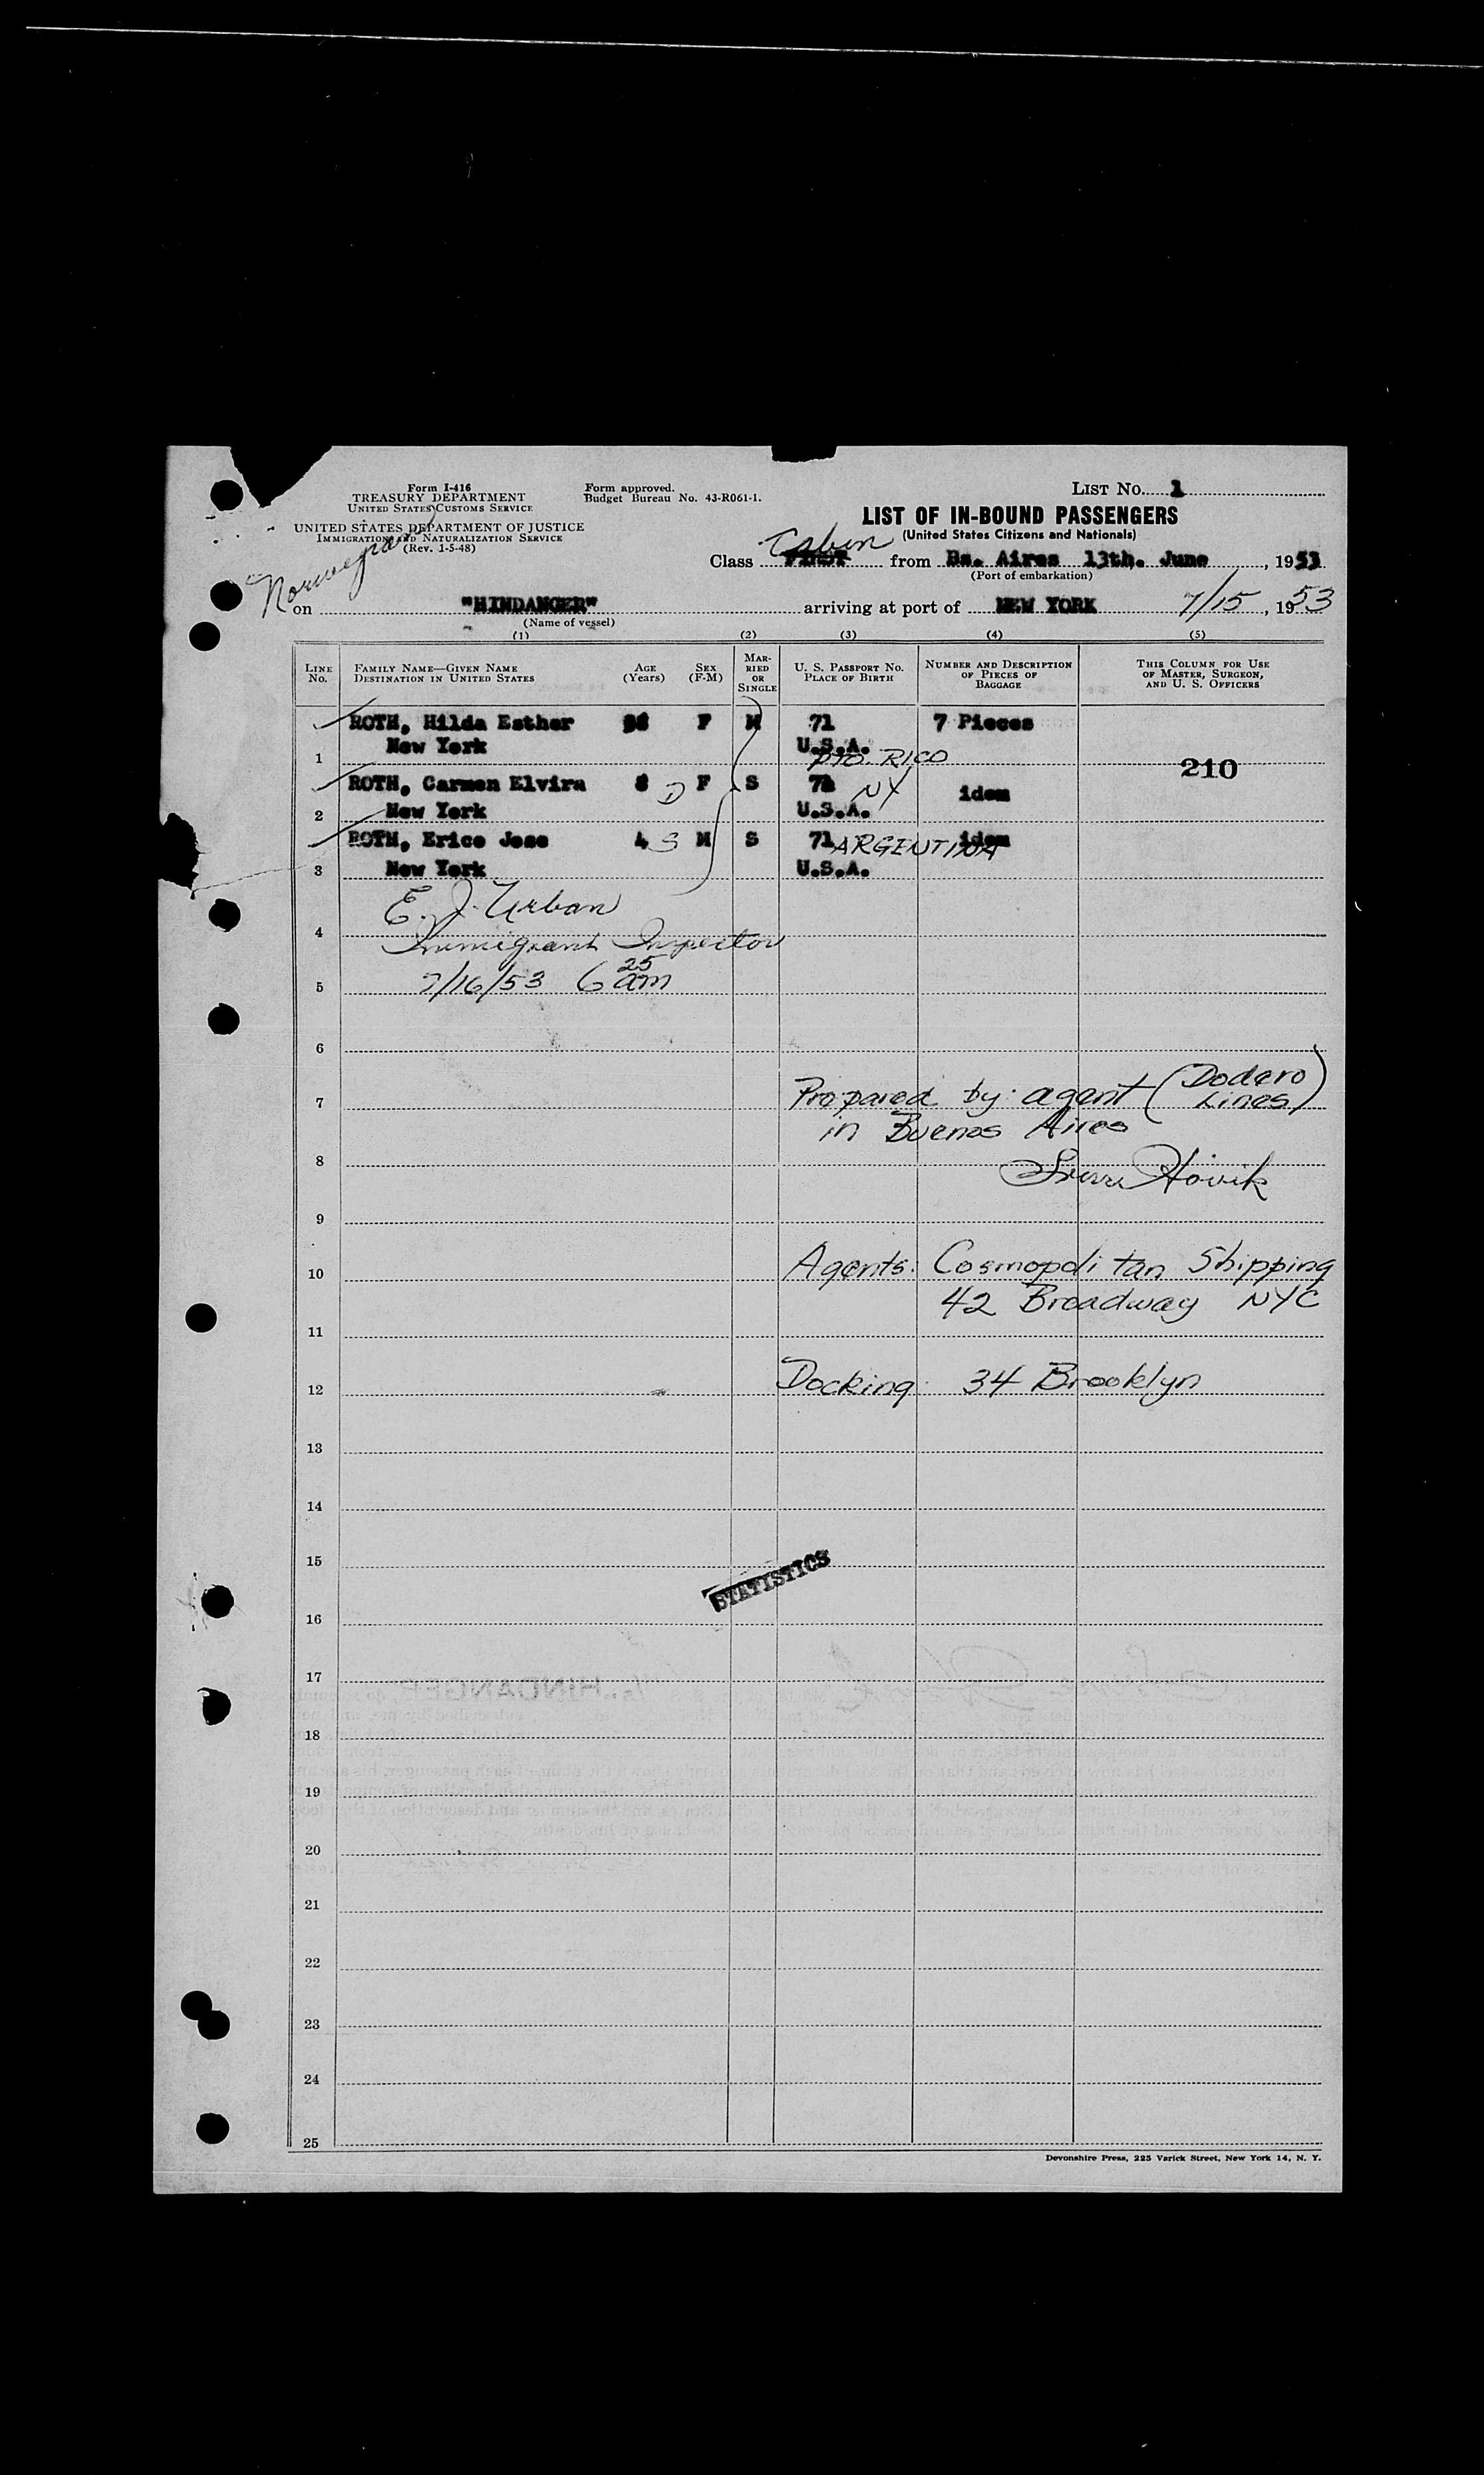 Form I-416
TREASURY DEPARTMENT
UNITED STATES CUSTOMS SERVICE
UNITED STATES DEPARTMENT OF JUSTICE
IMMIGRATION AND NATURALIZATION SERVICE
(Rev. 1-5-48)
Form approved.
Budget Bureau No. 43-R061-1.
LIST No. 1
LIST OF IN-BOUND PASSENGERS
(United States Citizens and Nationals)
Cabin
Class FIRST from Bs. Aires 13th. June, 1953
(Port of embarkation)
Norwegian
on "HINDANGER" arriving at port of NEW YORK 7/15, 1953
(Name of vessel)
(1) (2) (3) (4) (5)
LINE No.
FAMILY NAME—GIVEN NAME
DESTINATION IN UNITED STATES
AGE (Years)
SEX (F-M)
MARRIED OR SINGLE
U. S. PASSPORT NO.
PLACE OF BIRTH
NUMBER AND DESCRIPTION OF PIECES OF BAGGAGE
THIS COLUMN FOR USE OF MASTER, SURGEON, AND U. S. OFFICERS
ROTH, Hilda Esther F M 71 7 Pieces
1 New York U.S.A. PTO. RICO
210
ROTH, Carmen Elvira 8 D F S 71 NY idem
2 New York U.S.A.
ROTH, Erico Jose 4 S M S 71 ARGENTINA idem
3 New York U.S.A.
E. J. Urban
4
Immigrant Inspector
7/16/53 6 25 am
5
6
Prepared by: agent (Dodero Lines)
7
in Buenos Aires
8
Hövik
9
Agents: Cosmopolitan Shipping
10
42 Broadway NYC
11
Docking: 34 Brooklyn
12
13
14
15
STATISTICS
16
17
HINDANGER
18
19
20
21
22
23
24
25
Devonshire Press, 225 Varick Street, New York 14, N. Y.